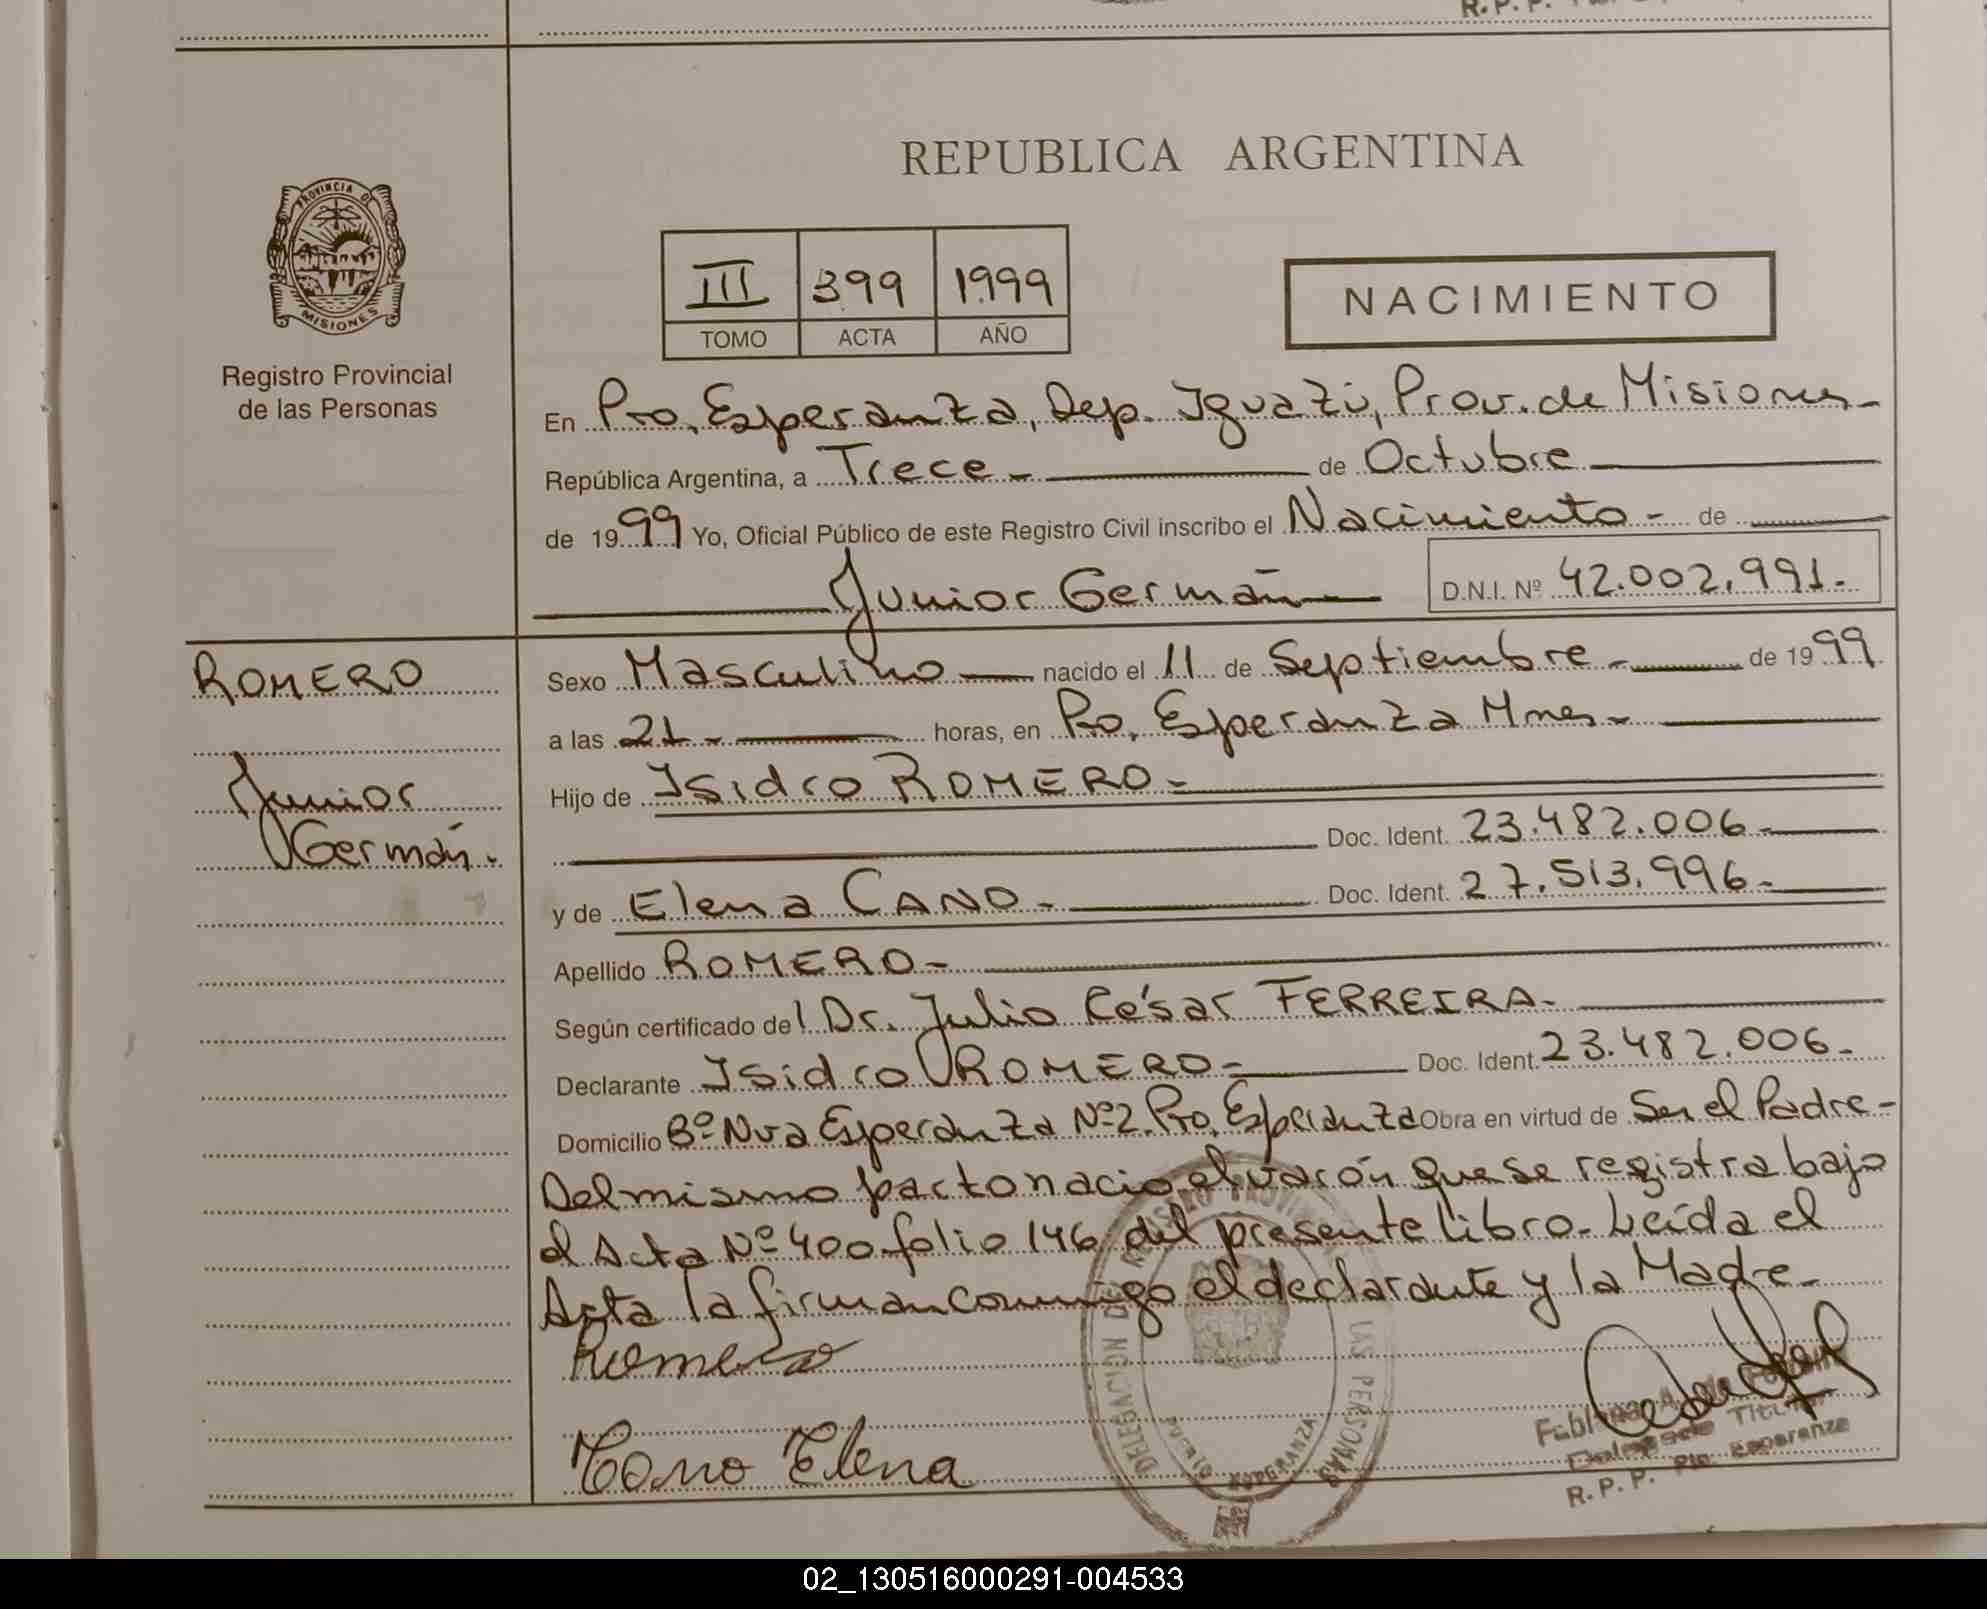 R.P.P.
REPUBLICA ARGENTINA
PROVINCIA DE
MISIONES
Registro Provincial
de las Personas
III 399 1999
TOMO ACTA AÑO
NACIMIENTO
En Pto. Esperanza, Dep. Iguazú, Prov. de Misiones-
República Argentina, a Trece - de Octubre
de 1999 Yo, Oficial Público de este Registro Civil inscribo el Nacimiento - de
Junior Germán D.N.I. Nº 42.002.991.-
ROMERO
Junior
Germán.
Sexo Masculino nacido el 11 de Septiembre - de 1999
a las 21 - horas, en Pto. Esperanza Mnes-
Hijo de Isidro ROMERO-
Doc. Ident. 23.482.006-
y de Elena CANO- Doc. Ident. 27.513.996-
Apellido ROMERO-
Según certificado del Dr. Julio César FERREIRA-
Declarante Isidro ROMERO- Doc. Ident. 23.482.006-
Domicilio Bº Nva Esperanza Nº2. Pto. Esperanza Obra en virtud de Ser el Padre-
Del mismo parto nacio el varón que se registra bajo
el Acta Nº 400 folio 146 del presente libro- Leída el
Acta la firman conmigo el declarante y la Madre-
Romero
Cano Elena
DELEGACION DEL REGISTRO PROVINCIAL DE LAS PERSONAS
PUERTO ESPERANZA
Delegado Titular
R.P.P. Pto. Esperanza
02_130516000291-004533